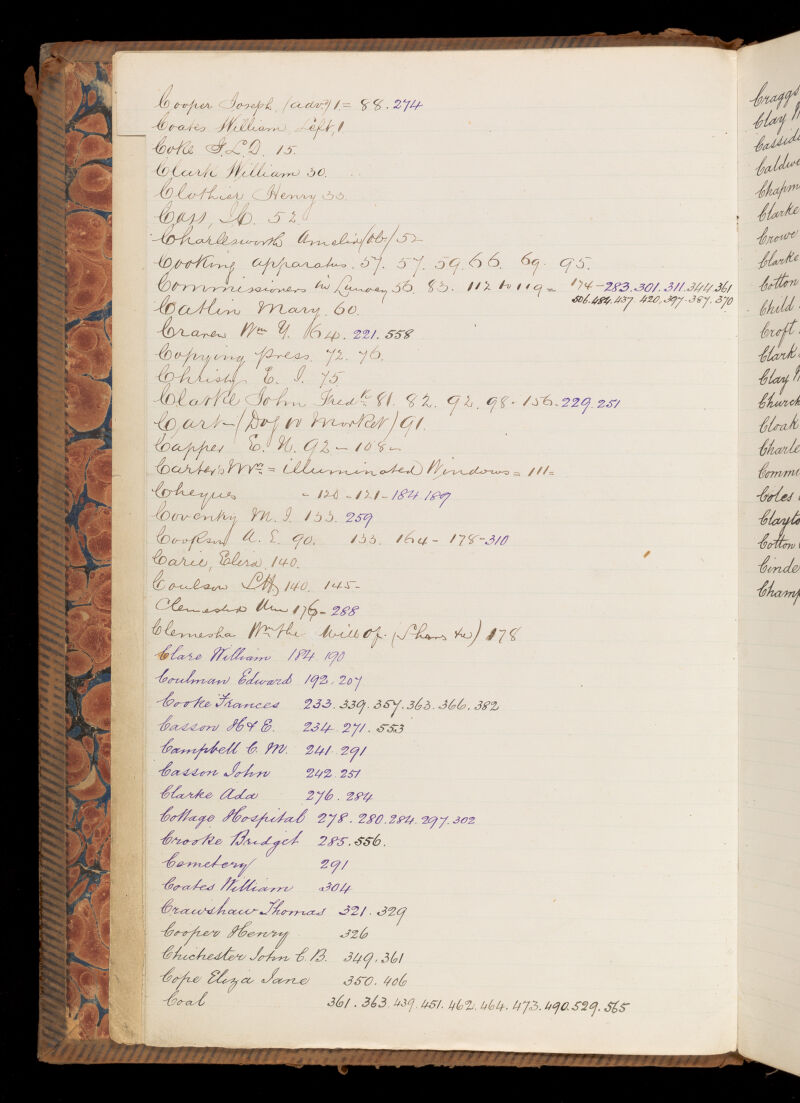 Cooper Joseph (adv) 1 = 88. 274
Coates William, Left, 1
Coke J.L.D. 15.
Clark William 30.
Clothier Henry 33
Cass, 52
Charlesworth Amelia (ob) 52
Cooking apparatus. 57. 57. 59. 66. 69. 95.
Commissioners in Lunacy 56. 83. 112 to 119 = 174 - 283. 301. 311. 344. 361
506. 484. 437. 420. 397. 387. 370
Catlin Mary. 60.
Craven Wm Y. 164. 221. 558
Copying press. 72. 76.
Christy E. J. 75
Clarke John Fredk 81. 82. 92. 98. 156. 229. 251
Cart - (Dog or Market) 91.
Capper E. N. 92 - 108 -
Carters = illuminated Windows = 111 =
Cheques - 120 - 121 - 184. 189
Coventry M. J. 133. 259
Cookson A. E. 90. 133. 164 - 178 - 310
Carie, Eliza, 140.
Coulson 140. 145 -
Clemesha Wm 176 - 288
Clemesha Wm the Will of. (Shares &c) 178
Clare William 184 190
Coulman Edward 192. 207
Cooke Frances 233. 339. 357. 363. 366. 382
Casson H & E. 234. 271. 553
Campbell C. M. 241. 291
Casson John 242. 251
Clarke Ada 276. 284
Cottage Hospital 278. 280. 284. 297. 302
Crooke Bridget 285. 556.
Cemetery 291
Coates William 304
Crawshaw Thomas 321. 329
Cooper Henry 326
Chichester John C. B. 349. 361
Cope Eliza Jane 350. 406
Coal 361. 363. 439. 451. 462. 464. 473. 490. 529. 565
Craggs
Clay
Clarke
Crowe
Clarke
Cotton
Child
Croft
Clark
Clay
Church
Cloak
Coles
Cotton